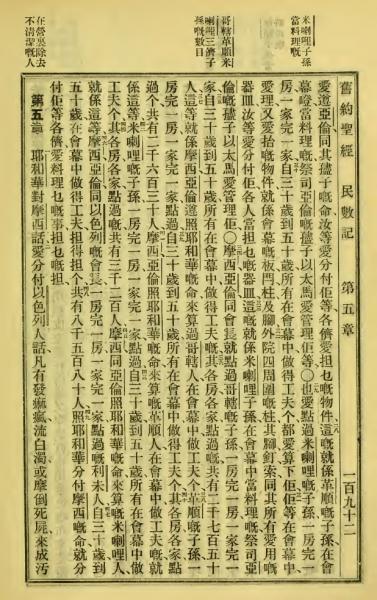 米喇哩子孫
當料理嘅
哥轄革順米
喇哩三儕子
孫嘅數目
在營裏除去
不清潔嘅人
舊約聖經 民數記 第五章 一百九十二
愛遵亞倫同其孻子嘅命汝等愛分付佢等各儕愛担乜嘅物件這嘅就係革順嘅子孫在會
幕噔當料理嘅祭司亞倫嘅孻子以太馬愛管理佢等〇也愛點過米喇哩嘅子孫一房完一
房一家完一家自三十歲到五十歲所有在會幕中做得工夫个都愛算下佢佢等在會幕中
愛理又愛抬嘅物件就係會幕嘅板閂柱及腳外院四周圍嘅柱其腳釘索同其所有愛用嘅
器皿汝等愛分付佢各人當担乜嘅器皿這嘅就係米喇哩嘅子孫在會幕中當料理嘅祭司亞
倫嘅孻子以太馬愛管理佢〇摩西亞倫同會長就點過哥轄嘅子孫一房完一房一家完一
家自三十歲到五十歲所有在會幕中做得工夫嘅其各房各家點過嘅共有二千七百五十
人這等就係摩西亞倫遵照耶和華嘅命來算過哥轄人在會幕中做得工夫个革順嘅子孫一
房完一房一家完一家點過自三十歲到五十歲所有在會幕中做得工夫个其各房各家點
過个共有二千六百三十人摩西亞倫照耶和華嘅命來算嘅革順人在會幕中做得工夫嘅就
係這等米喇哩嘅子孫一房完一房一家完一家點過自三十歲到五十歲所有在會幕中做
工夫个其各房各家點過嘅共有三千二百人摩西同亞倫照耶和華嘅命來算嘅米喇哩人
就係這等摩西亞倫同以色列嘅會長一房完一房一家完一家點過嘅利未人自三十歲到
五十歲在會幕中做得工夫担得担个共有八千五百八十人照耶和華分付摩西嘅命就分
付佢等各儕愛料理乜嘅事担乜嘅担
第五章 耶和華對摩西話愛分付以色列人話凡有發痲瘋流白濁或摩倒死屍來成汚